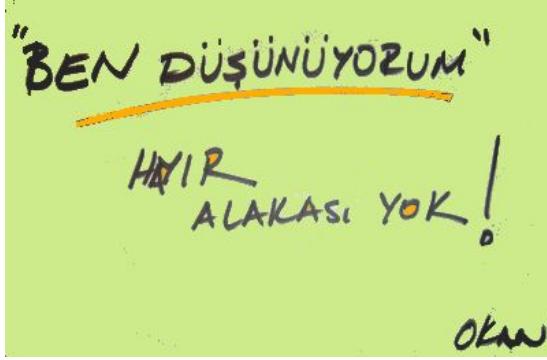 "BEN DÜŞÜNÜYORUM"
HAYIR
ALAKASI YOK!
OKAN